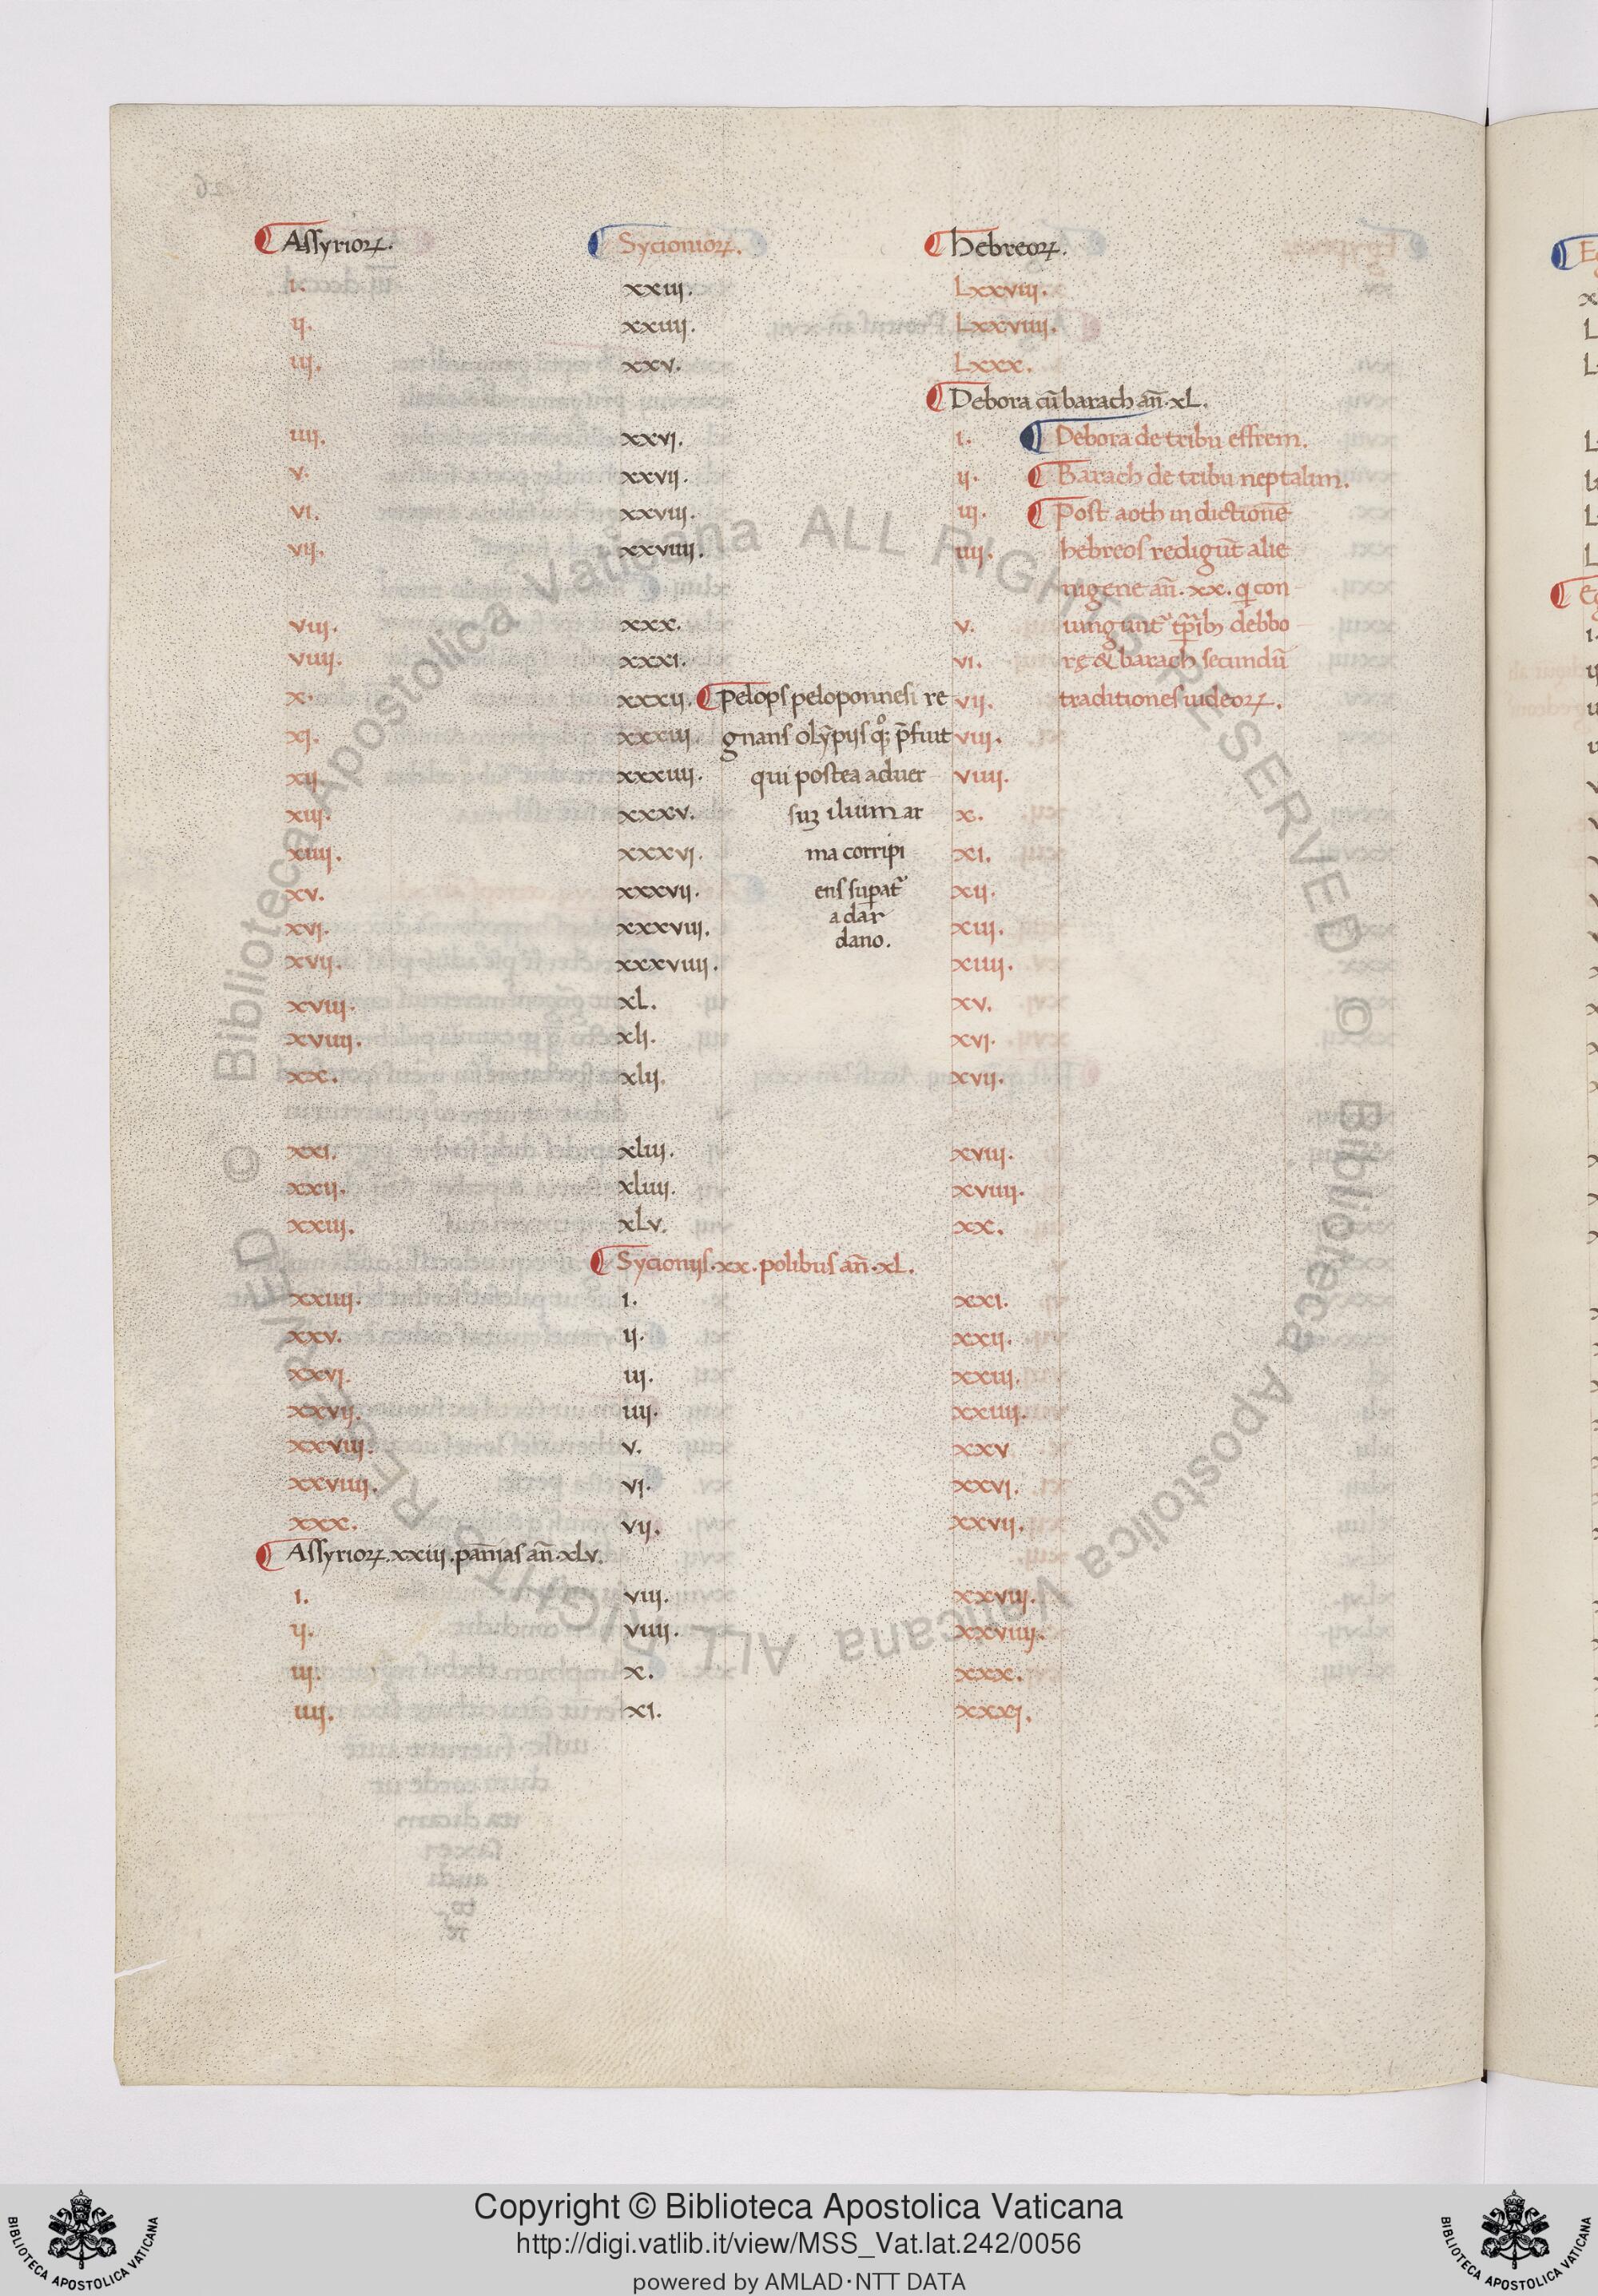 ¶ Assyrioꝝ. ¶ Sycionioꝝ. ¶ hebreoꝝ.
i. xxiii. Lxxviii.
ii. xxiiii. Lxxviiii.
iii. xxv. Lxxx.
¶ Debora cū barach an̄. xL.
iiii. xxvi. i. ¶ Debora de tribu effrem.
v. xxvii. ii. ¶ Barach de tribu neptalim.
vi. xxviii. iii. ¶ Post aoth in dictionē
vii. xxviiii. iiii. hebreos redigūt alie
nigene an̄. xx. q̄ con
viii. xxx. v. iungunt᷑ tp̄ib; debbo
viiii. xxxi. vi. rę & barach secundū
x. xxxii. ¶ Pelops peloponnesi re vii. traditiones iudeoꝝ.
xi. xxxiii. gnans olȳpijs qͦ; p̄fuit viii.
xii. xxxiiii. qui postea aduer viiii.
xiii. xxxv. suꝫ ilium ar x.
xiiii. xxxvi. ma corripi xi.
xv. xxxvii. ens suꝑat᷑ xii.
xvi. xxxviii. a dar xiii.
dano.
xvii. xxxviiii. xiiii.
xviii. xL. xv.
xviiii. xli. xvi.
xx. xlii. xvii.
xxi. xliii. xviii.
xxii. xliiii. xviiii.
xxiii. xLv. xx.
¶ Sycionijs. xx. polibus an̄. xL.
xxiiii. i. xxi.
xxv. ii. xxii.
xxvi. iii. xxiii.
xxvii. iiii. xxiiii.
xxviii. v. xxv
xxviiii. vi. xxvi.
xxx. vii. xxvii.
¶ Assyrioꝝ. xxiii. pan̄ias an̄. xLv.
i. viii. xxviii.
ii. viiii. xxviiii.
iii. x. xxx.
iiii. xi. xxxi.
© Biblioteca Apostolica Vaticana ALL RIGHTS RESERVED © Biblioteca Apostolica Vaticana ALL RIGHTS RESERVED
Copyright © Biblioteca Apostolica Vaticana
http://digi.vatlib.it/view/MSS_Vat.lat.242/0056
powered by AMLAD·NTT DATA
BIBLIOTECA APOSTOLICA VATICANA
BIBLIOTECA APOSTOLICA VATICANA